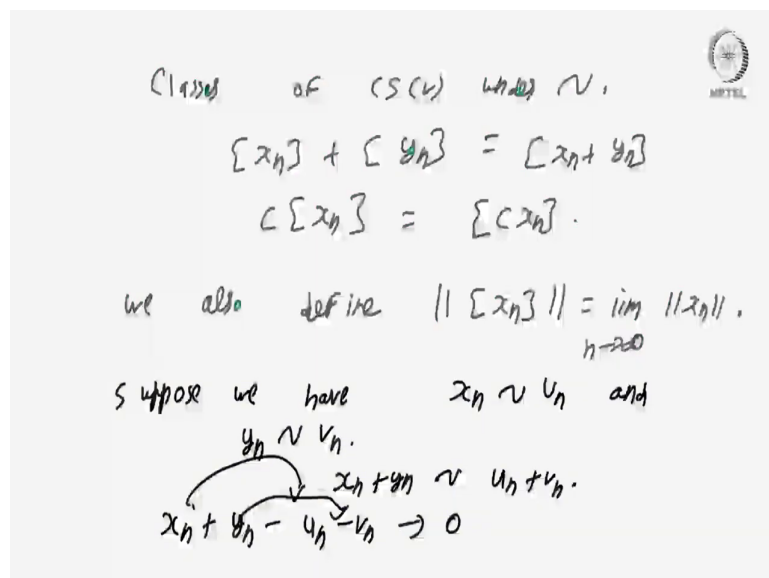 NPTEL
Classes of CS(V) under ~.
[xₙ] + [yₙ] = [xₙ + yₙ]
C[xₙ] = [Cxₙ].
we also define ||[xₙ]|| = lim ||xₙ||.
n→∞
Suppose we have xₙ ~ uₙ and
yₙ ~ vₙ.
xₙ + yₙ ~ uₙ + vₙ.
xₙ + yₙ - uₙ - vₙ → 0